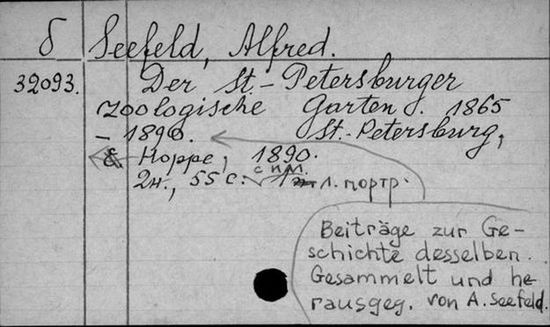 б Seefeld, Alfred.
32093. Der St.-Petersburger
zoologische Garten. 1865
- 1890. St.-Petersburg,
&. Hoppe, 1890.
с илл.
2н., 55 с. 1 л. портр.
Beiträge zur Ge-
schichte desselben.
Gesammelt und he-
rausgeg. von A. Seefeld.